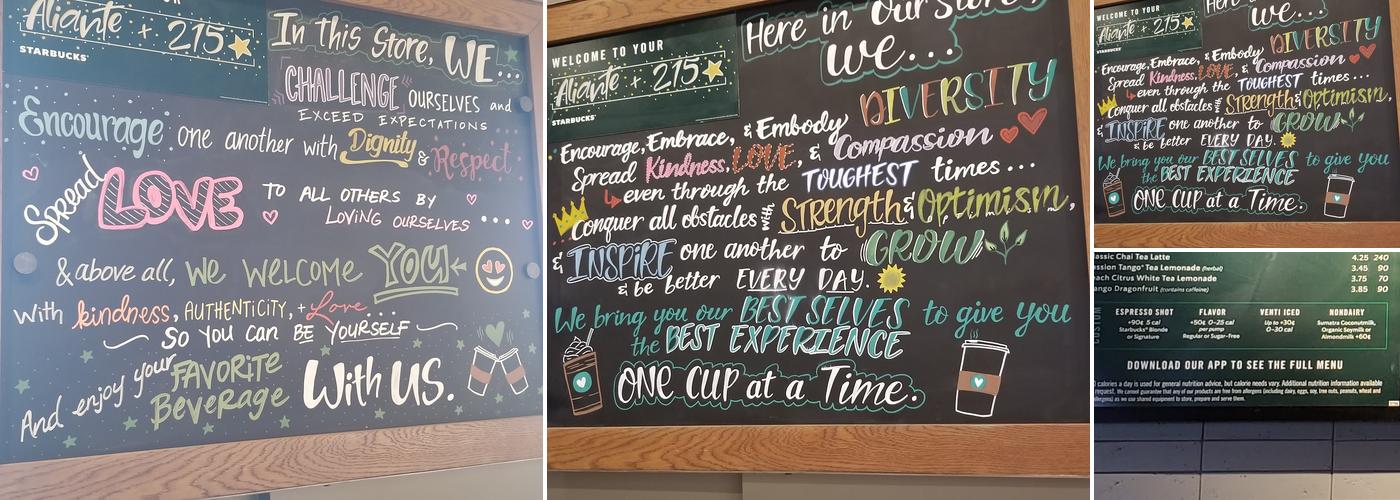 Aliante + 215
STARBUCKS
In this Store, WE...
CHALLENGE OURSELVES and
EXCEED EXPECTATIONS
Encourage one another with Dignity & Respect
Spread LOVE TO ALL OTHERS BY
LOVING OURSELVES ...
& above all, we welcome YOU
With kindness, AUTHENTICITY, + Love...
So you can BE YOURSELF
And enjoy your FAVORITE
Beverage With US.
WELCOME TO YOUR
Aliante + 215
STARBUCKS
Here in Our Store,
we...
Encourage, Embrace, & Embody DIVERSITY
Spread Kindness, LOVE, & Compassion
even through the TOUGHEST times...
Conquer all obstacles Strength & Optimism,
& INSPIRE one another to GROW
& be better EVERY DAY.
We bring you our BEST SELVES to give you
the BEST EXPERIENCE
ONE CUP at a Time.
Aliante + 215
STARBUCKS
we...
Encourage, Embrace, & Embody DIVERSITY
Spread Kindness, LOVE, & Compassion
even through the TOUGHEST times...
Conquer all obstacles Strength & Optimism,
& INSPIRE one another to GROW
& be better EVERY DAY.
We bring you our BEST SELVES to give you
the BEST EXPERIENCE
ONE CUP at a Time.
Chai Tea Latte 4.25 240
Tango Tea Lemonade (herbal) 3.45 90
Citrus White Tea Lemonade 3.75 70
Dragonfruit (contains caffeine) 3.85 90
ESPRESSO SHOT FLAVOR VENTI ICED NONDAIRY
+90¢ 5 cal +50¢ 0–25 cal Up to +30¢ Sumatra Coconutmilk,
Starbucks® Blonde per pump 0–30 cal Organic Soymilk or
or Signature Regular or Sugar-Free Almondmilk +60¢
DOWNLOAD OUR APP TO SEE THE FULL MENU
calories a day is used for general nutrition advice, but calorie needs vary. Additional nutrition information available
request. We cannot guarantee that any of our products are free from allergens (including dairy, eggs, soy, tree nuts, peanuts, wheat and
allergens) as we use shared equipment to store, prepare and serve them.